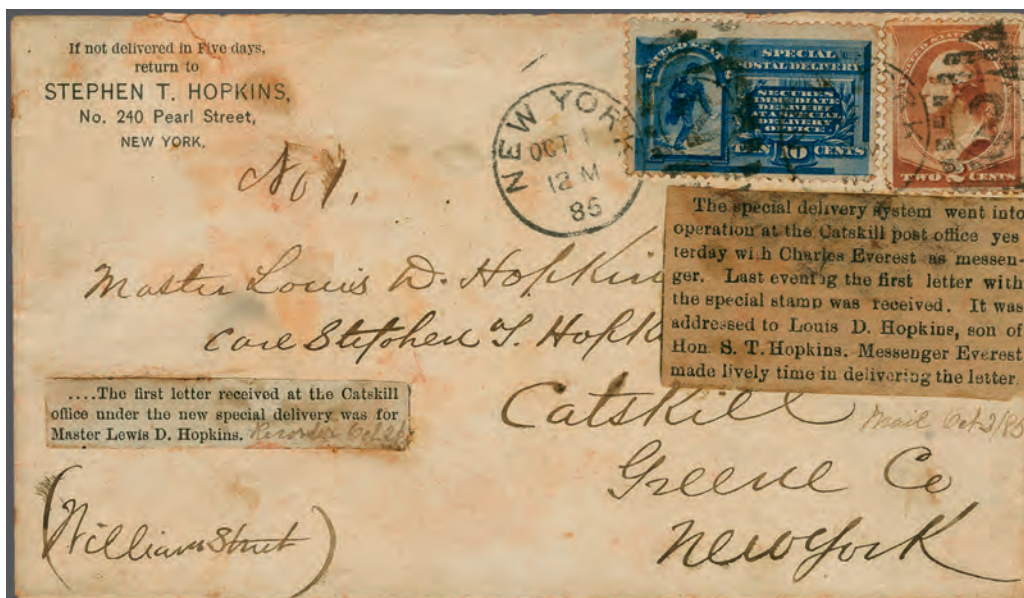 If not delivered in Five days,
return to
STEPHEN T. HOPKINS,
No. 240 Pearl Street,
NEW YORK.
No 1.
NEW YORK
OCT 1
12 M
85
UNITED STAT
SPECIAL
POSTAL DELIVERY
SECURES
IMMEDIATE
DELIVERY
AT A SPECIAL
DELIVERY
OFFICE
TEN 10 CENTS
UNITED STATES
TWO 2 CENTS
The special delivery system went into
operation at the Catskill post office yes
terday with Charles Everest as messen-
ger. Last evening the first letter with
the special stamp was received. It was
addressed to Louis D. Hopkins, son of
Hon. S. T. Hopkins. Messenger Everest
made lively time in delivering the letter.
Mail Oct 3/85
Master Louis D. Hopkin
care Stephen T. Hopk
Catskill
Greene Co
New York
....The first letter received at the Catskill
office under the new special delivery was for
Master Lewis D. Hopkins. Recorder Oct 2
(William Street)